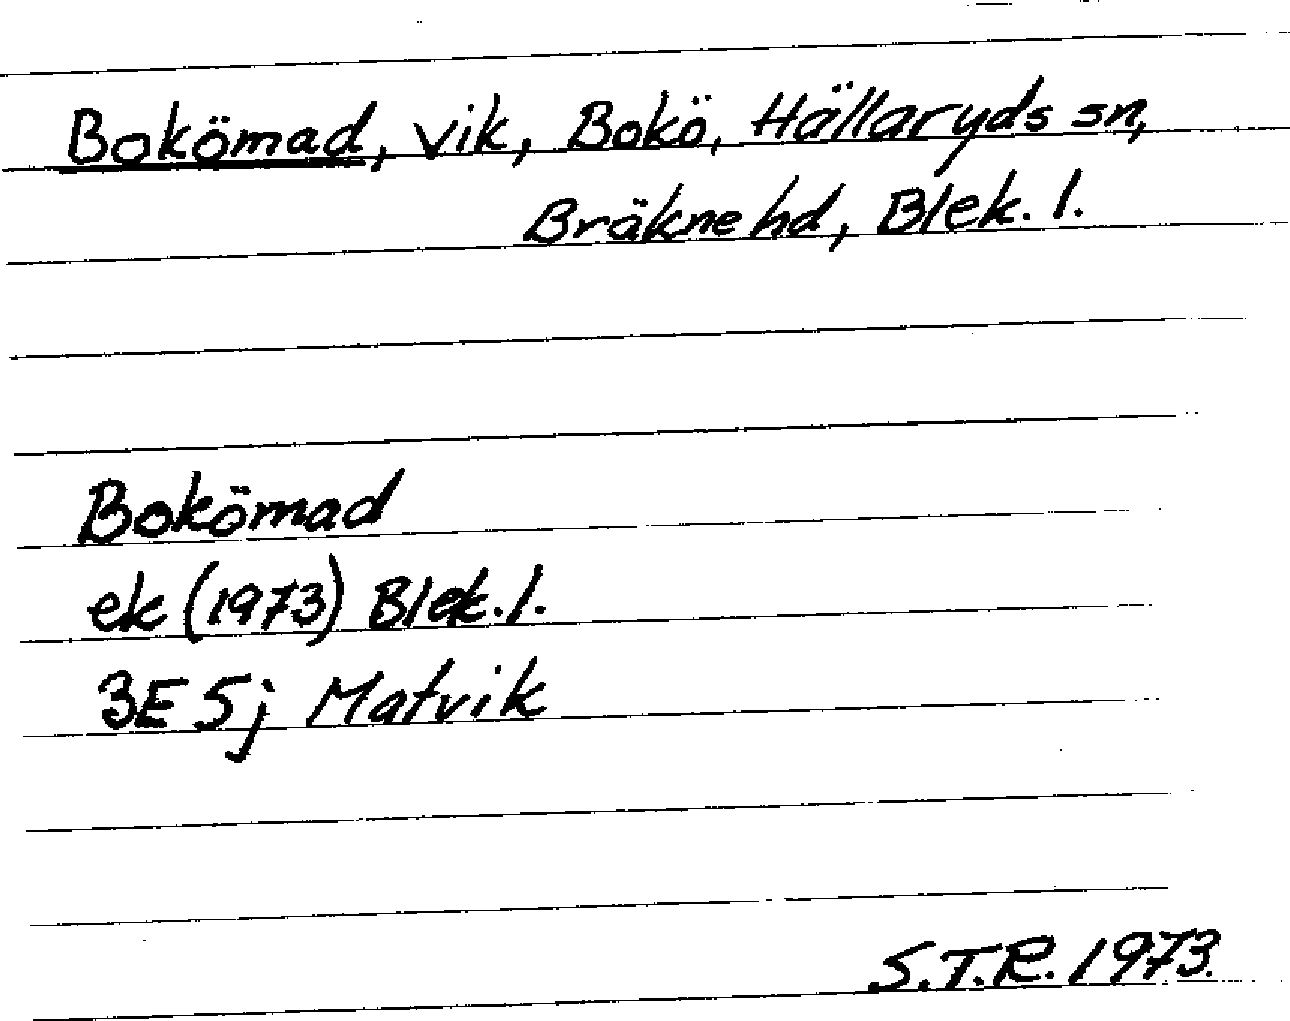 Bokömad, vik, Bokö, Hällaryds sn,
Bräkne hd, Blek. l.
Bokömad
ek (1973) Blek. l.
3E 5j Matvik
S.T.R. 1973.